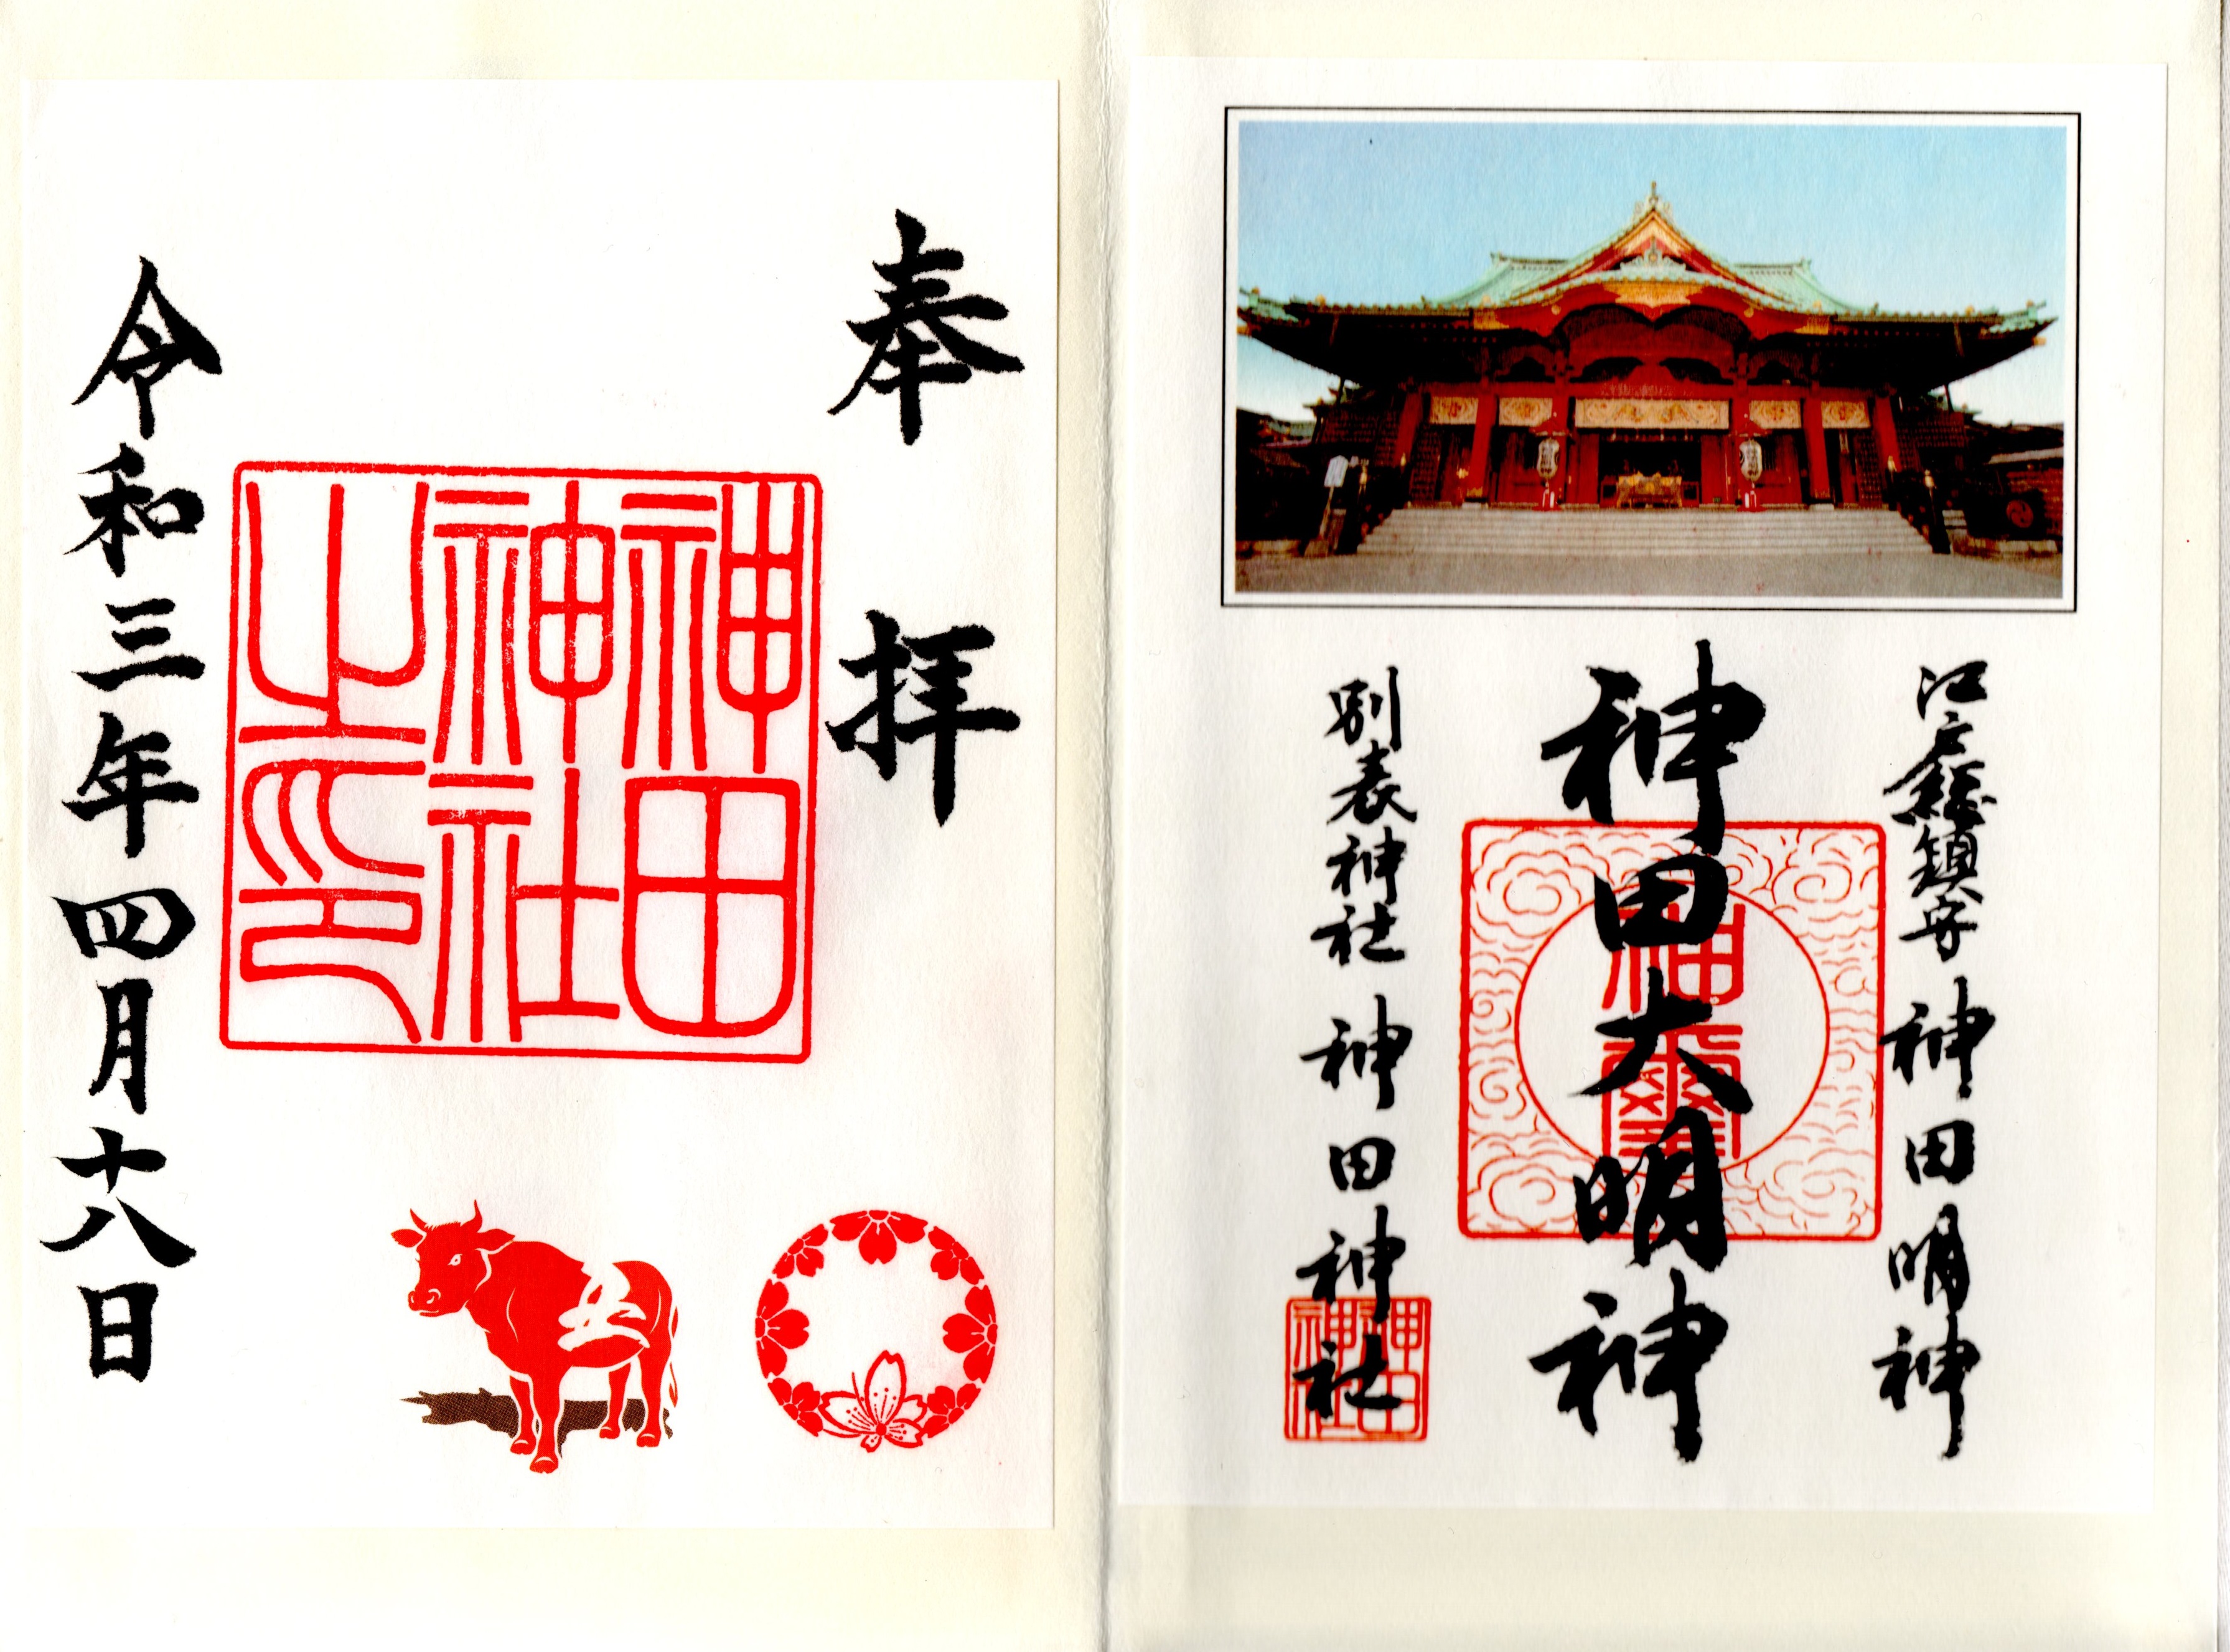 江戸総鎮守 神田明神
神田大明神
神璽
別表神社 神田神社
神田神社
奉拝
神田神社之印
令和三年四月十八日